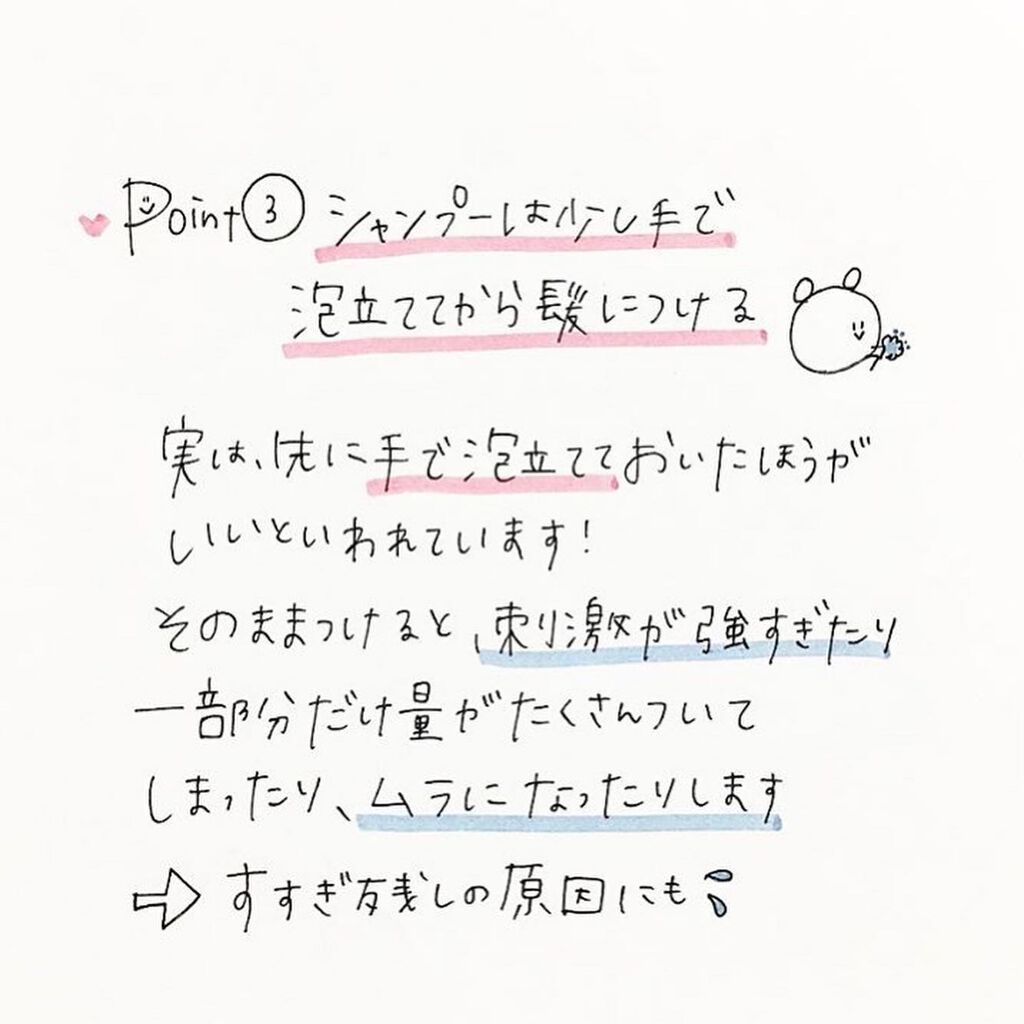 Point③ シャンプーは少し手で
泡立ててから髪につける
実は、先に手で泡立てておいたほうが
いいといわれています!
そのままつけると、刺激が強すぎたり
一部分だけ量がたくさんついて
しまったり、ムラになったりします
⇨ すすぎ残しの原因にも